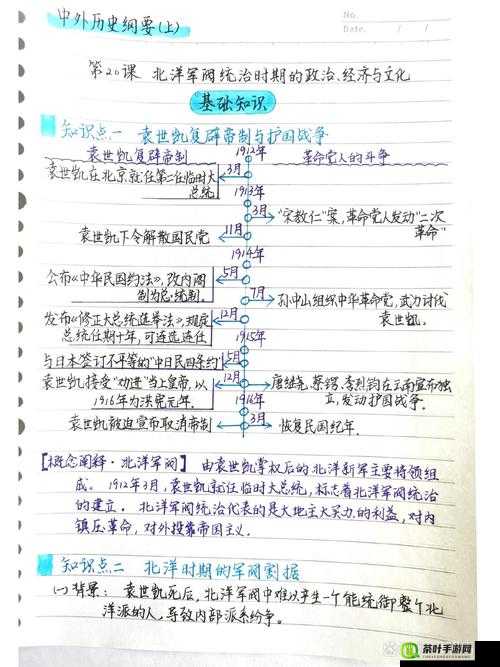 中外历史纲要(上)
No.
Date. / /
第20课 北洋军阀统治时期的政治、经济与文化
基础知识
知识点一 袁世凯复辟帝制与护国战争
袁世凯复辟帝制 1912年 革命党人的斗争
袁世凯在北京就任第二任临时大总统 3月
1913年
3月 "宋教仁"案,革命党人发动"二次革命"
袁世凯下令解散国民党 11月
1914年
公布《中华民国约法》,改内阁制为总统制。 5月
7月 孙中山组织中华革命党,武力讨伐袁世凯。
发布《修正大总统选举法》,规定总统任期十年,可连选连任 12月
1915年
与日本签订不平等的"中日民四条约" 5月
袁世凯接受"劝进"当上皇帝,以1916年为洪宪元年。 12月 唐继尧、蔡锷、李烈钧在云南宣布独立,发动护国战争。
1916年
袁世凯被迫宣布取消帝制 3月 恢复民国纪年。
[概念阐释·北洋军阀] 由袁世凯掌权后的北洋新军主要将领组
成。1912年3月,袁世凯就任临时大总统,标志着北洋军阀统治
的建立。北洋军阀统治代表的是大地主大买办的利益,对内
镇压革命,对外投靠帝国主义。
知识点二 北洋时期的军阀割据
(一)背景:袁世凯死后,北洋军阀中难以产生一个能统御整个北
洋派的人,导致内部派系纷争。
茶叶手游网